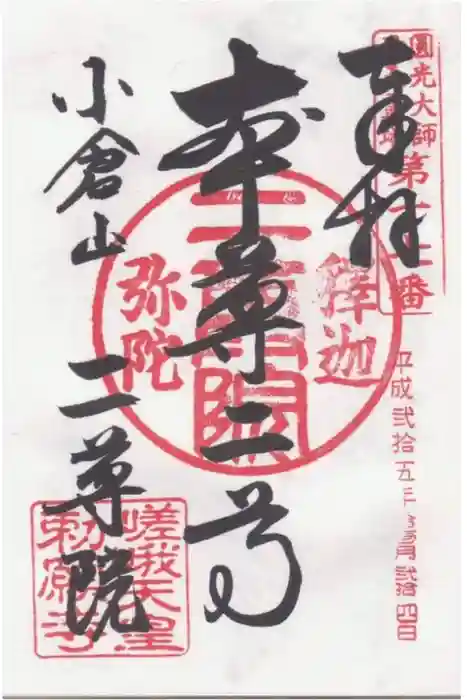 圓光大師
第十七番
奉拝
平成弐拾五年
月弐拾四日
本尊二尊
釋迦
二尊院
弥陀
小倉山
二尊院
嵯峨天皇
勅願寺